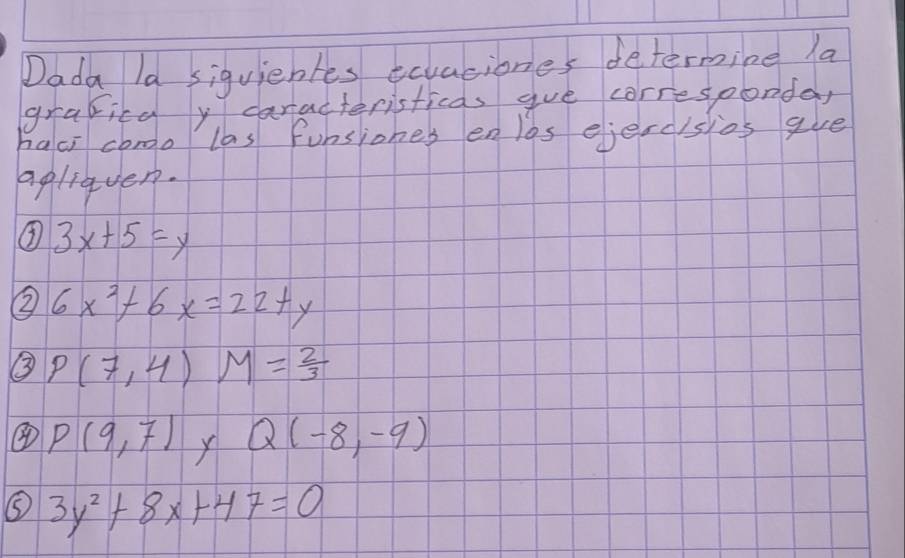 Dada la siguientes ecuaciones determine la
grafica y caracteristicas que corresponda,
haci como las funsiones en los ejercisios que
apliquen.
① 3x+5=y
② 6x²+6x=22+y
③ P(7,4) M=2/3
④ P(9,7) y Q(-8,-9)
⑤ 3y²+8x+47=0